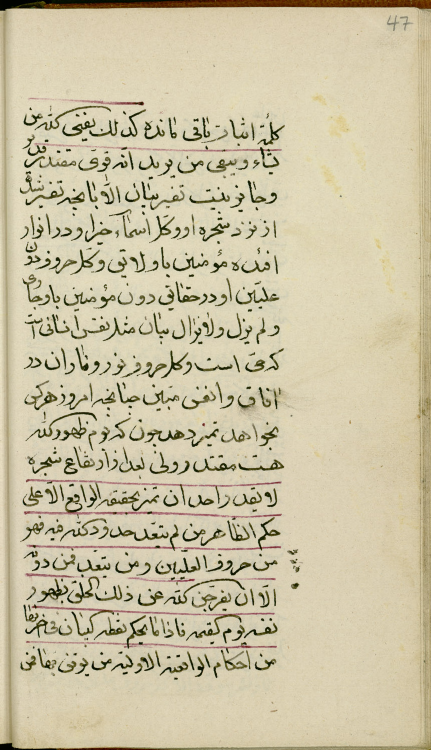 47
کلمهٔ اثبات باقی مانده کذلک یفنی الله من
یشاء و یبقی من یرید انه قوی مقتدر قدیر
و جایز نیست تفسیر بیان الا بما نجه تفسیر شده
از نزد شجره او و کل اسماء خیر او در انوار
افئده مؤمنین باو لایق و کل حروف دون
علیین او در حقایق دون مؤمنین باو جاری
و لم یزل و لا یزال بیان مثل نفس انسانی است
که حی است و کل حروف نور و نار ان در
افاق و انفس مبین چنانچه امروز هرکس
بخواهد تمیز دهد چون که یوم ظهور الله
هست مقتدر ولی بعد از ارتفاع شجره
لا یقدر احد ان تمیز بحقیقه الواقع الا علی
حکم الظاهر من لم یتعد حدود الله فیه فهو
من حروف العلیین و من یتعد فمن دونه
الا ان یفرجن الله عن ذلک الخلق بظهور
نفسه یوم القیمه فاذا ما یحکم نقطه البیان فی
من احکام الواقعیه الاولیه من یوقن بها فی